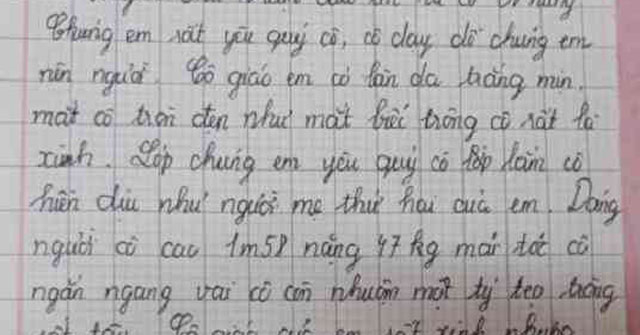 Chúng em rất yêu quý cô, cô dạy dỗ chúng em
nên người. Cô giáo em có làn da trắng mịn.
mắt cô tròn đen như mắt biếc trông cô rất là
xinh. Lớp chúng em yêu quý cô lắm cô
hiền dịu như người mẹ thứ hai của em. Dáng
người cô cao 1m58 nặng 47 kg mái tóc cô
ngắn ngang vai cô còn nhuộm một tý teo trắng